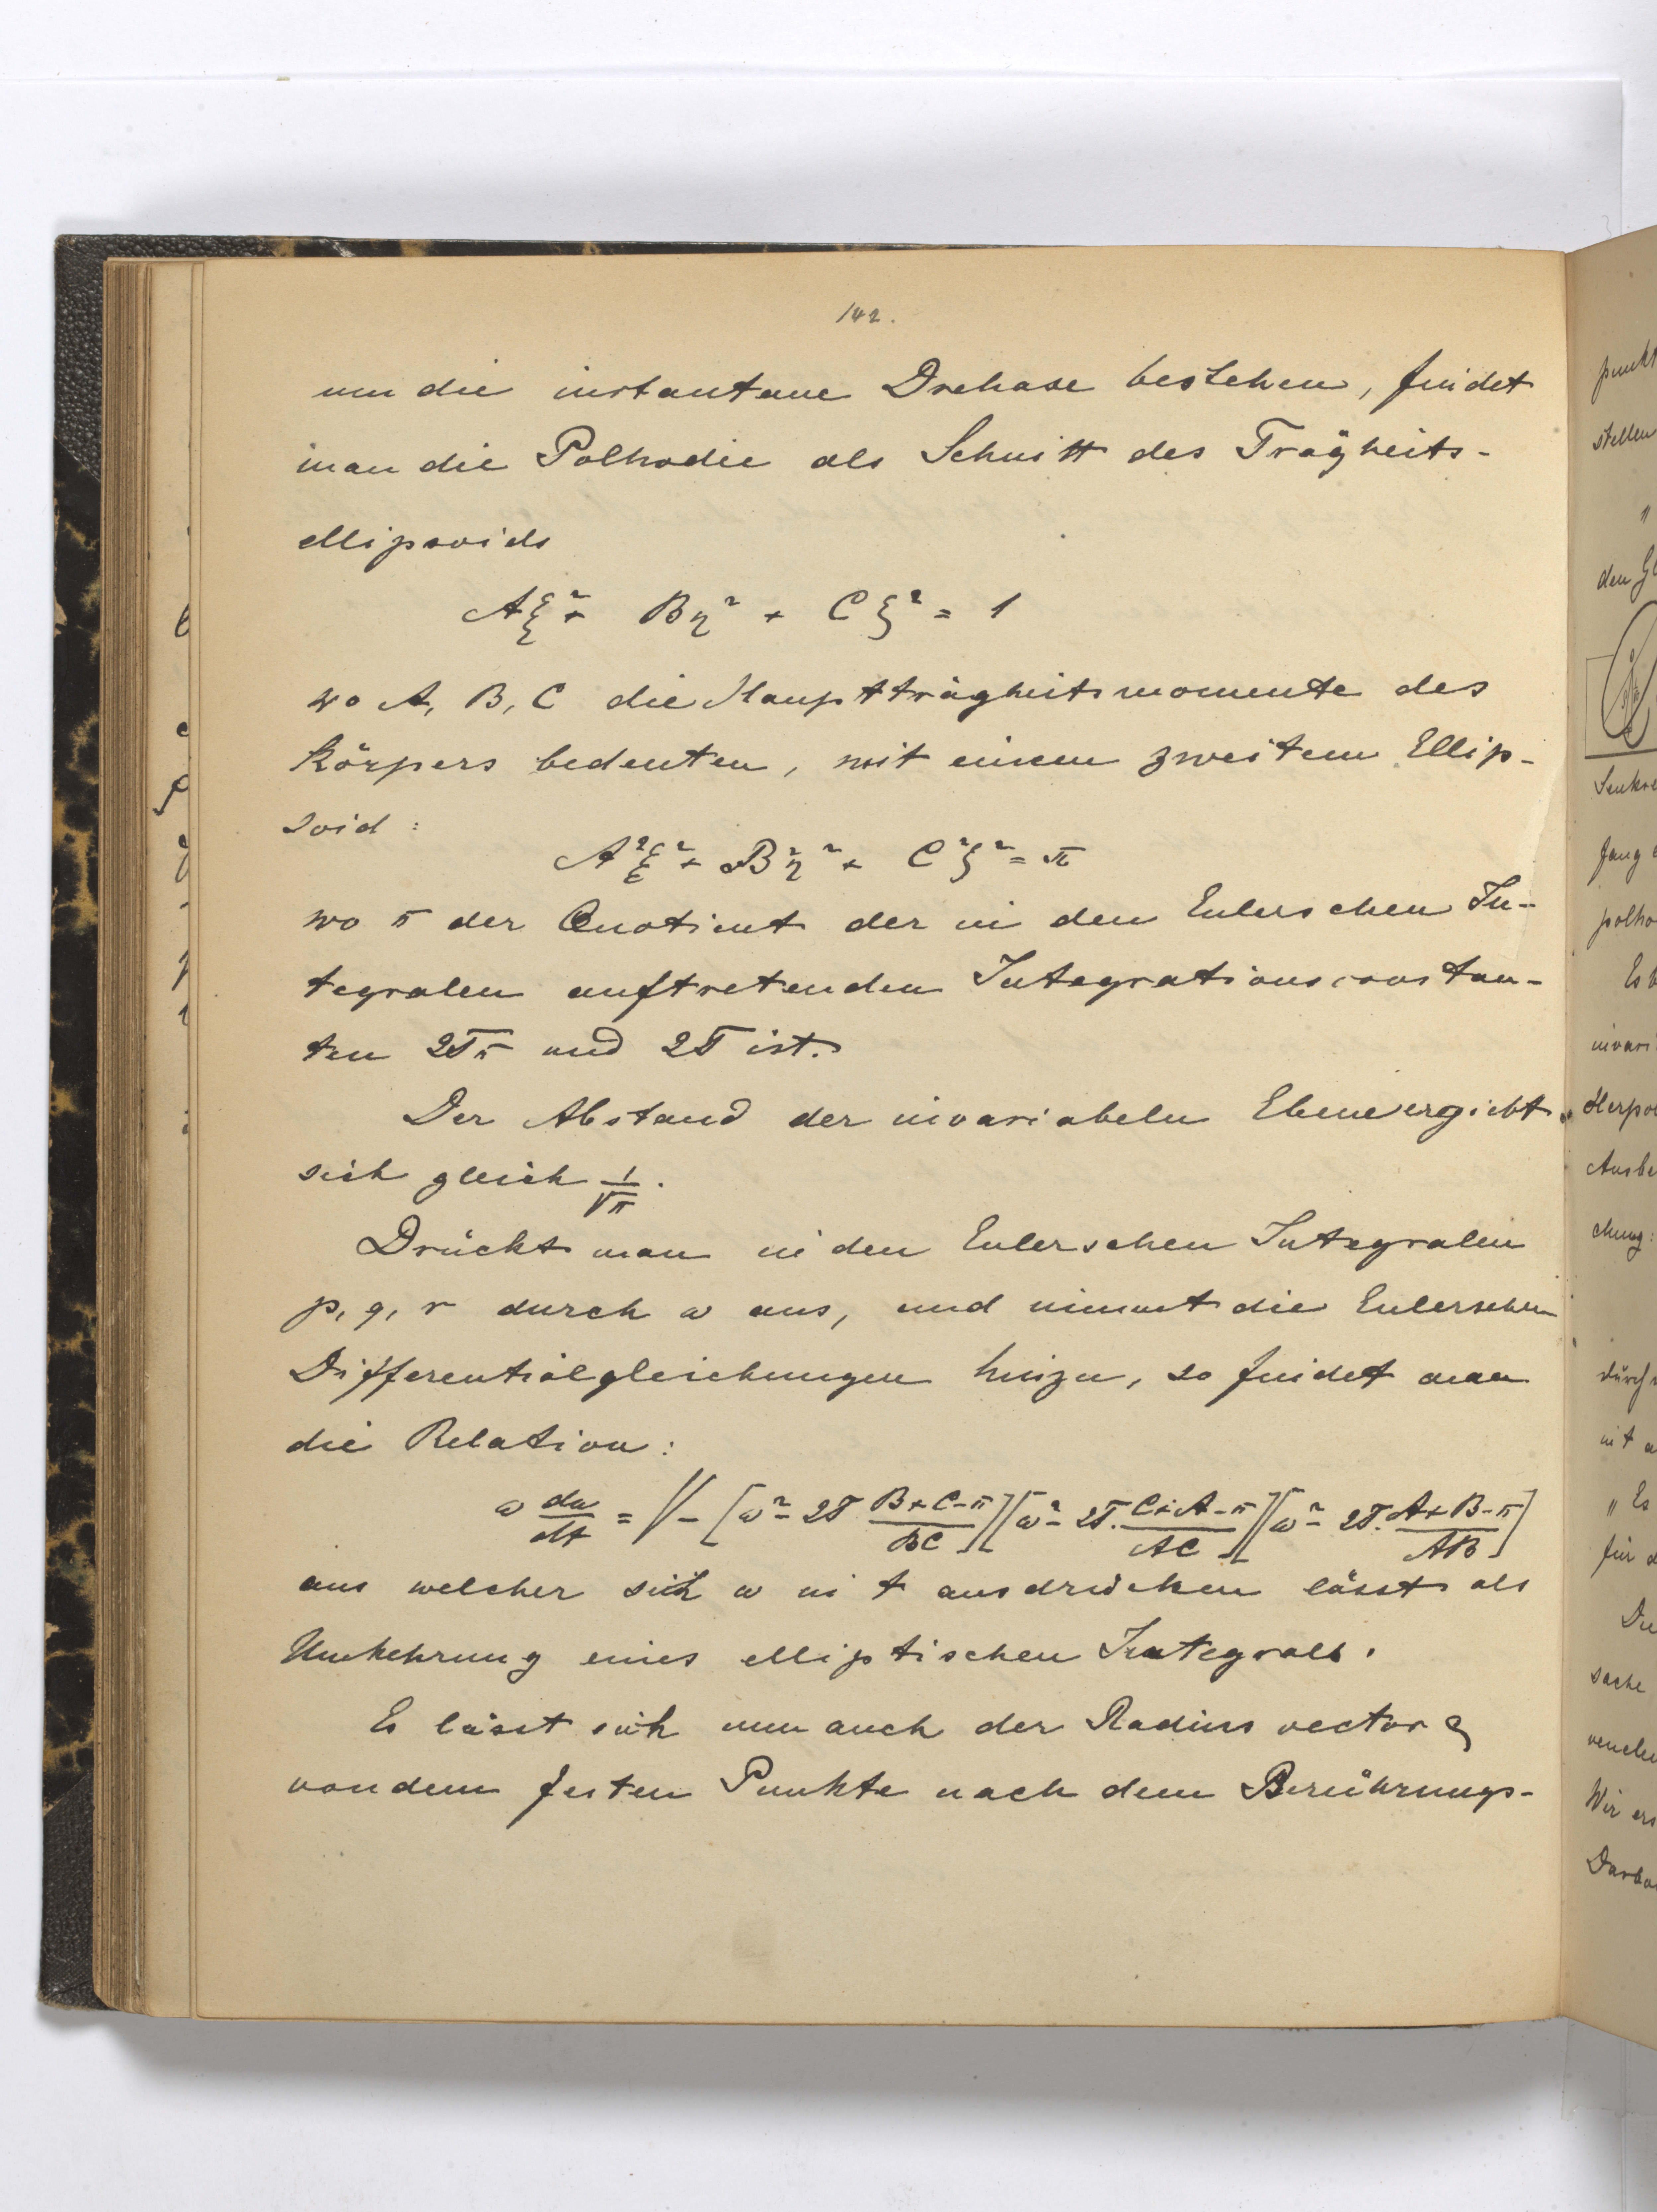 142.
um die instantane Drehaxe bestehen, findet
man die Polhodie als Schnitt des Trägheits-
ellipsoids
Aξ² + Bη² + Cζ² = 1
wo A, B, C die Hauptträgheitsmomente des
Körpers bedeuten, mit einem zweitem Ellip-
soid:
A²ξ² + B²η² + C²ζ² = π
wo π der Quotient der in den Eulerschen In-
tegralen auftretenden Integrationsconstan-
ten 2Tπ und 2T ist.
Der Abstand der invariabeln Ebene ergiebt
sich gleich 1/√π.
Drückt man in den Eulerschen Integralen
p, q, r durch ω aus, und nimmt die Eulerschen
Differentialgleichungen hinzu, so findet man
die Relation:
ω dω/dt = √-[ω² - 2T (B+C-π)/BC][ω² - 2T. (C+A-π)/AC][ω² - 2T. (A+B-π)/AB]
aus welcher sich ω in t ausdrücken lässt als
Umkehrung eines elliptischen Integrals.
Es lässt sich nun auch der Radius vector ϱ
von dem festen Punkte nach dem Berührungs-
punkt
stellen
"
den
Senkre
fang
polho
Es
invari
Herpo
Ausbe
chung:
durch
mit
„Es
für
Die
sache
Wir ers
Darbo